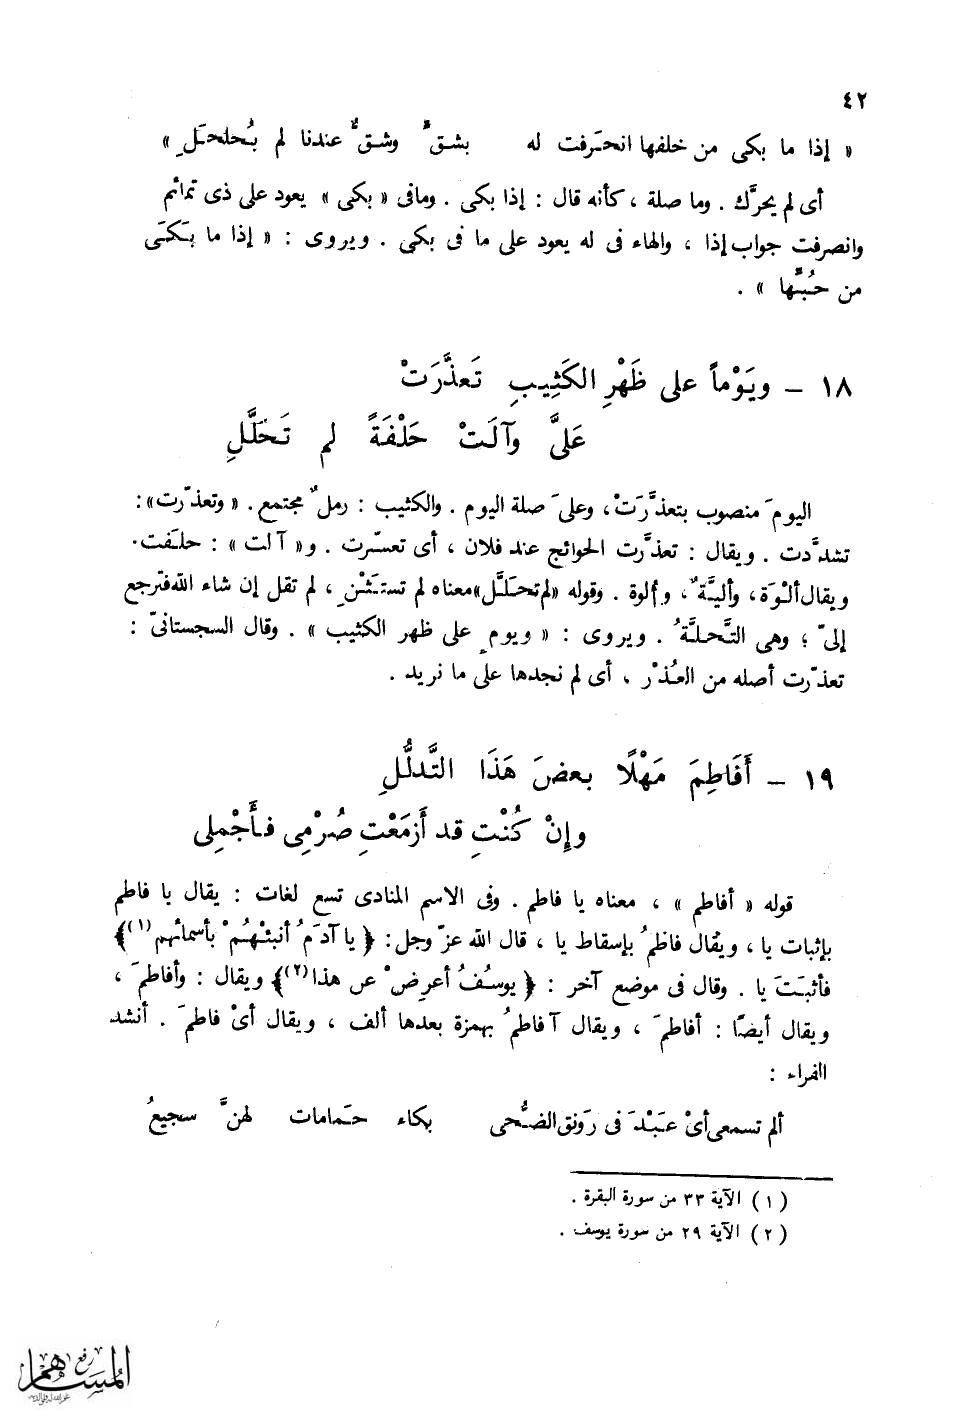 ٤٢
« إذا ما بكى من خلفها انحَرفت له بشقٍّ وشقٌّ عندنا لم يُحلحَلِ »
أى لم يحرَّك . وما صلة ، كأنه قال : إذا بكى . ومافى « بكى » يعود على ذى تمائم
وانصرفت جواب إذا ، والهاء فى له يعود على ما فى بكى . ويروى : « إذا ما بَكَى
من حُبِّها » .
١٨ – ويَوْماً على ظَهْرِ الكَثِيبِ تَعذَّرَتْ
عَلىَّ وآلَتْ حَلْفَةً لم تَحَلَّلِ
اليومَ منصوب بتعذَّرَتْ، وعلىَ صلة اليوم . والكثيب : رملٌ مجتمع. « وتعذّرت» :
تشدَّدت . ويقال : تعذَّرت الحوائج عند فلان ، أى تعسّرت . و« آلت » : حلَفت.
ويقال ألْوَة، وأليَّةٌ ، وأُلوة . وقوله «لم تحَلَّل» معناه لم تستَثْنِ ، لم تقل إن شاء الله فترجع
إلىّ ؛ وهى التَّحلَّةُ . ويروى : « ويومٍ على ظهر الكثيب » . وقال السجستانىّ :
تعذّرت أصله من العُذْر ، أى لم نجدها على ما نريد .
١٩ – أَفَاطِمَ مَهْلًا بعضَ هَذَا التَّدلُّلِ
وإِنْ كُنْتِ قد أَزمَعْتِ صُرْمِى فأَجْمِلِى
قوله « أفاطم » ، معناه يا فاطم . وفى الاسم المنادى تسع لغات : يقال يا فاطم
بإثبات يا ، ويقال فاطمُ بإسقاط يا ، قال الله عزّ وجل : ﴿ يا آدَمُ أنبئْهُمْ بأسمائهم (١)﴾
فأثبَتَ يا . وقال فى موضع آخر : ﴿ يوسُفُ أعرِضْ عن هذا (٢)﴾ ويقال : وأفاطمَ ،
ويقال أيضًا : أفاطمَ ، ويقال آ فاطمُ بهمزة بعدها ألف ، ويقال أىْ فاطمَ . أنشد
الفراء :
ألم تسمعى أىْ عَبْدَ فى رَونق الضُّحى بكاء حَمامات لهنَّ سجيعُ
( ١ ) الآية ٣٣ من سورة البقرة .
( ٢ ) الآية ٢٩ من سورة يوسف .
رفع
المساهم